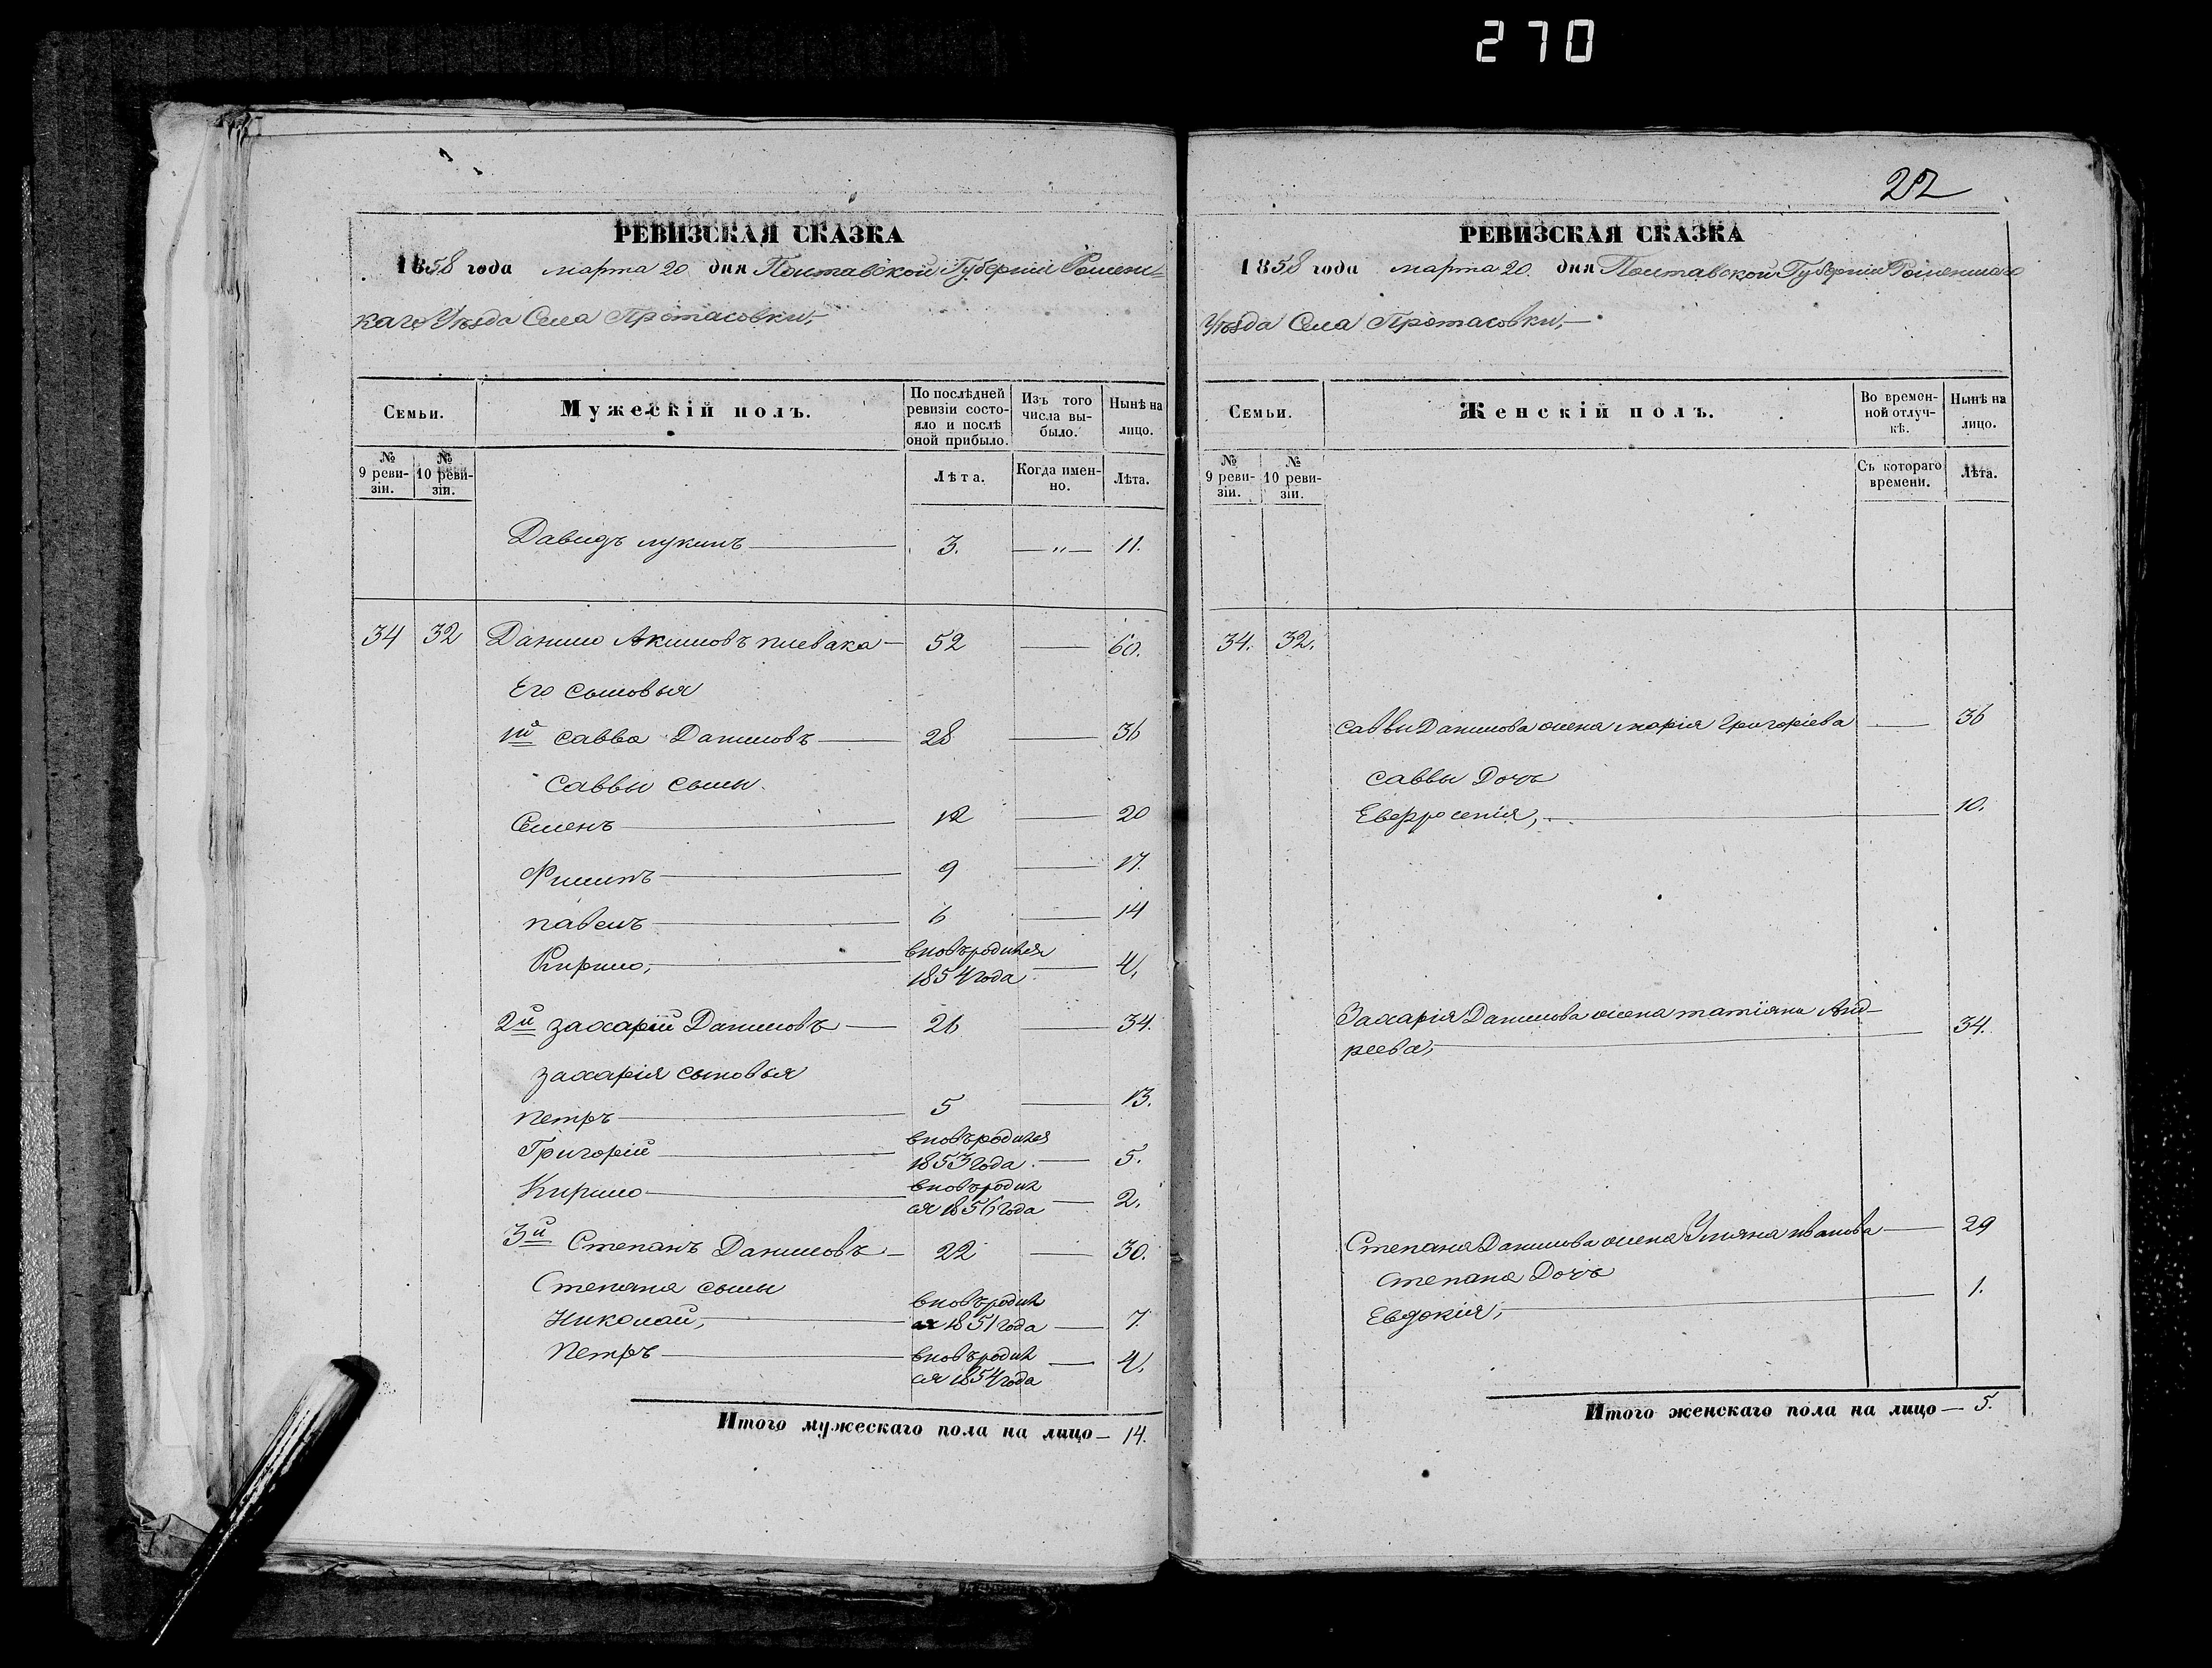 270
РЕВИЗСКАЯ СКАЗКА
1858 года марта 20 дня Полтавской Губерніи Роменс-
каго Уѣзда Села Протасовки,
Семьи.
Мужескій полъ.
По послѣдней
ревизіи состо-
яло и послѣ
оной прибыло.
Изъ того
числа вы-
было.
Нынѣ на
лицо.
№
9 реви-
зіи.
№
10 реви-
зіи.
Лѣта.
Когда имен-
но.
Лѣта.
Давидъ лукинъ 3. — „ — 11.
34 32 Данило Акимовъ плевака 52 — 60.
Его сыновья
1й савва Даниловъ 28 — 36
Саввы сыны
Семенъ 12 — 20
Филипъ 9 — 17.
павелъ 6 — 14
Кирило, вновь родился
1854 года — 4,
2й захарій Даниловъ 26 — 34.
захарія сыновья
петръ 5 — 13.
Григорій вновь родился
1853 года. — 5.
Кирило вновь родил
ся 1856 года — 2.
3й Степанъ Даниловъ 22 — 30.
Степана сыны
Николай, вновь родил
ся 1851 года — 7.
Петръ вновь родил
ся 1854 года — 4.
Итого мужескаго пола на лицо — 14.
22
РЕВИЗСКАЯ СКАЗКА
1858 года марта 20. дня Полтавской Губерніи Роменскаго
Уѣзда Села Протасовки,
Семьи.
Женскій полъ.
Во времен-
ной отлуч-
кѣ.
Нынѣ на
лицо.
№
9 реви-
зіи.
№
10 реви-
зіи.
Съ котораго
времени.
Лѣта.
34. 32.
саввы Данилова жена марія Григоріева — 36
саввы Дочь
Евфросенія, 10.
Захарія Данилова жена татіяна Анд-
реева, 34.
Степана Данилова жена Уляна иванова — 29
степана Дочь
Евдокія, 1.
Итого женскаго пола на лицо — 5.